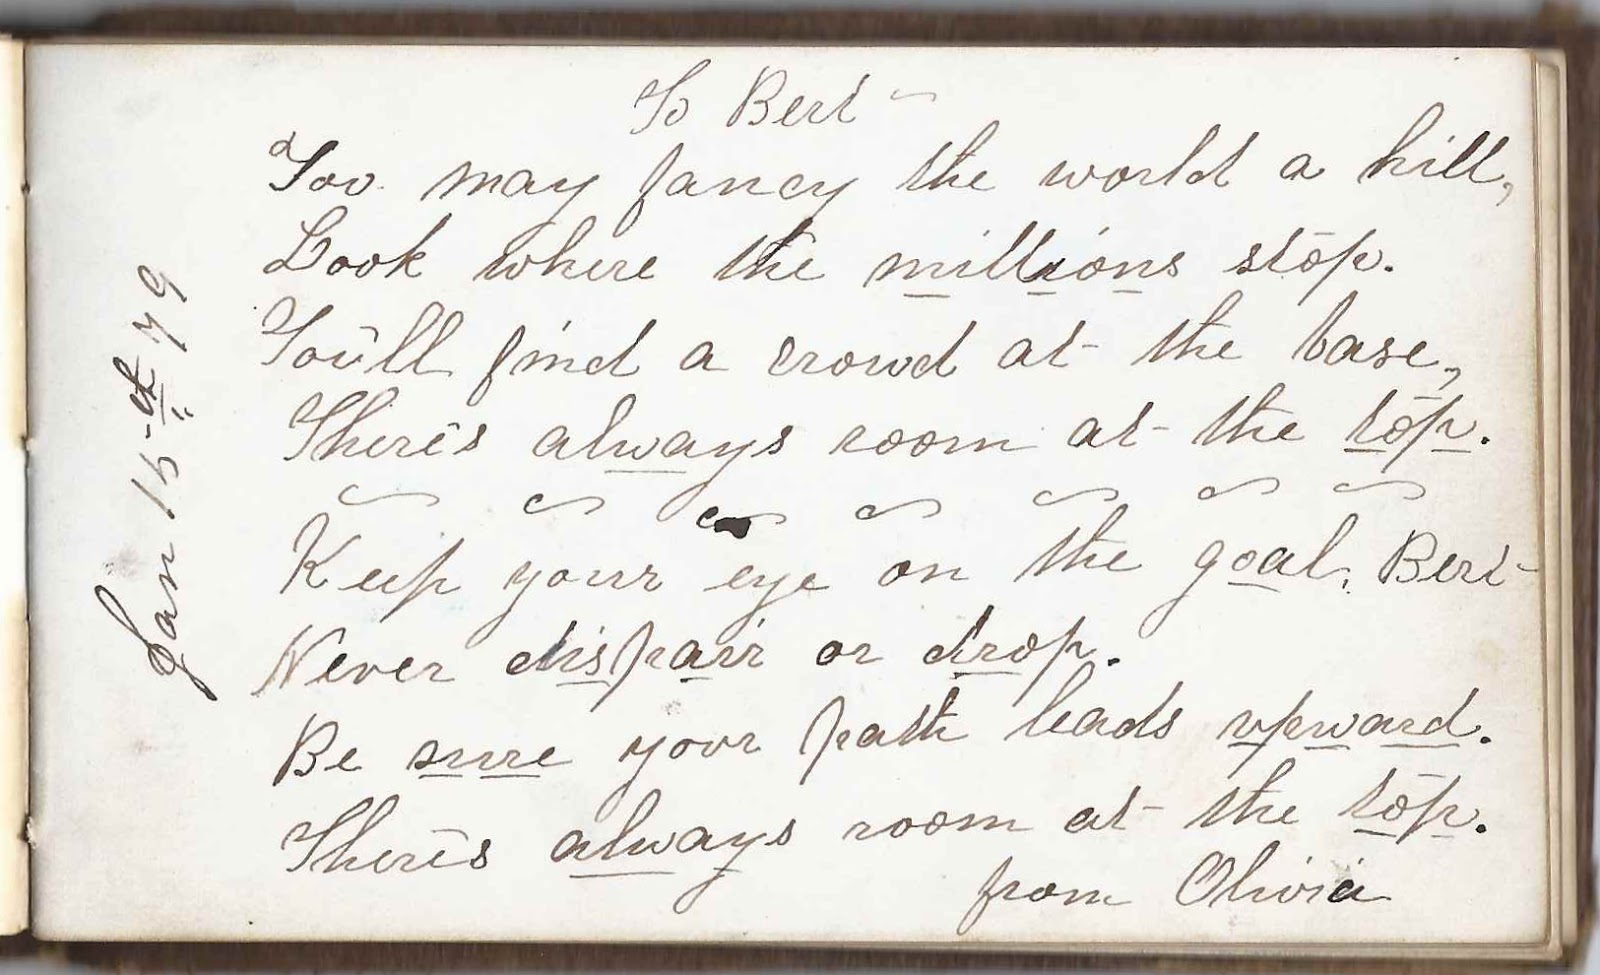 To Bert
You may fancy the world a hill,
Look where the millions stop.
You'll find a crowd at the base,
There's always room at the top.
Keep your eye on the goal, Bert
Never dispair or drop.
Be sure your path leads upward.
There's always room at the top.
from Olivia
Jan 15th 79